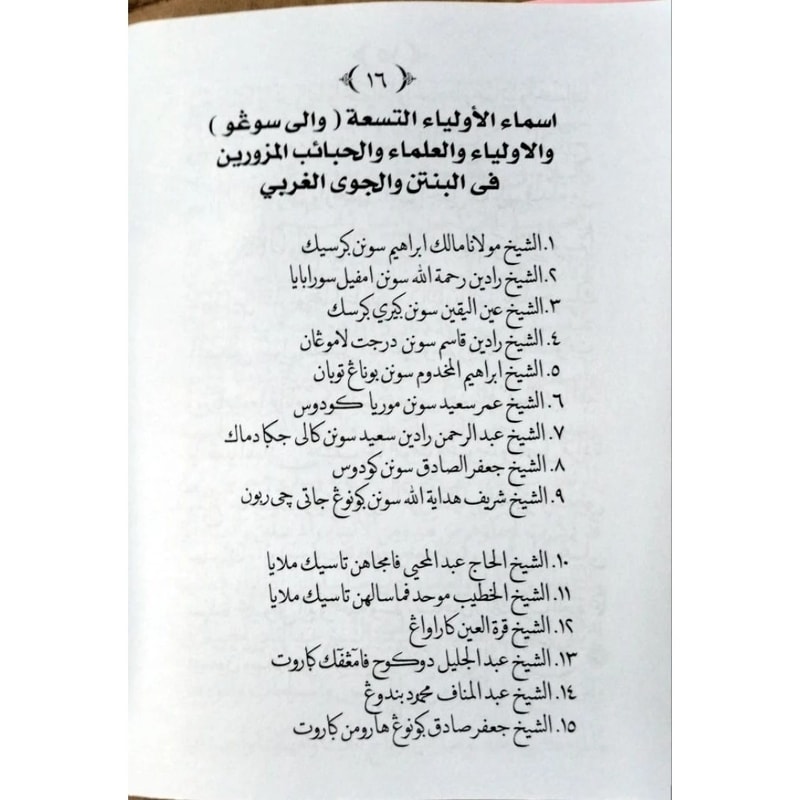 (١٦)
اسماء الأولياء التسعة ( والى سوڠو )
والاولياء والعلماء والحبائب المزورين
فى البنتن والجوى الغربي
١. الشيخ مولانا مالك ابراهيم سونن ڬرسيك
٢. الشيخ رادين رحمة الله سونن امفيل سورابايا
٣. الشيخ عين اليقين سونن ڬيري ڬرسك
٤. الشيخ رادين قاسم سونن درجت لاموڠان
٥. الشيخ ابراهيم المخدوم سونن بوناڠ توبان
٦. الشيخ عمر سعيد سونن موريا كودوس
٧. الشيخ عبد الرحمن رادين سعيد سونن كالى جڬا دماك
٨. الشيخ جعفر الصادق سونن كودوس
٩. الشيخ شريف هداية الله سونن ڬونوڠ جاتى چى ربون
١٠. الشيخ الحاج عبد المحيي فامجاهن تاسيك ملايا
١١. الشيخ الخطيب موحد فماسالهن تاسيك ملايا
١٢. الشيخ قرة العين كاراواڠ
١٣. الشيخ عبد الجليل دوكوح فامڠفك ڬاروت
١٤. الشيخ عبد المناف محمود بندوڠ
١٥. الشيخ جعفر صادق ڬونوڠ هارومن ڬاروت